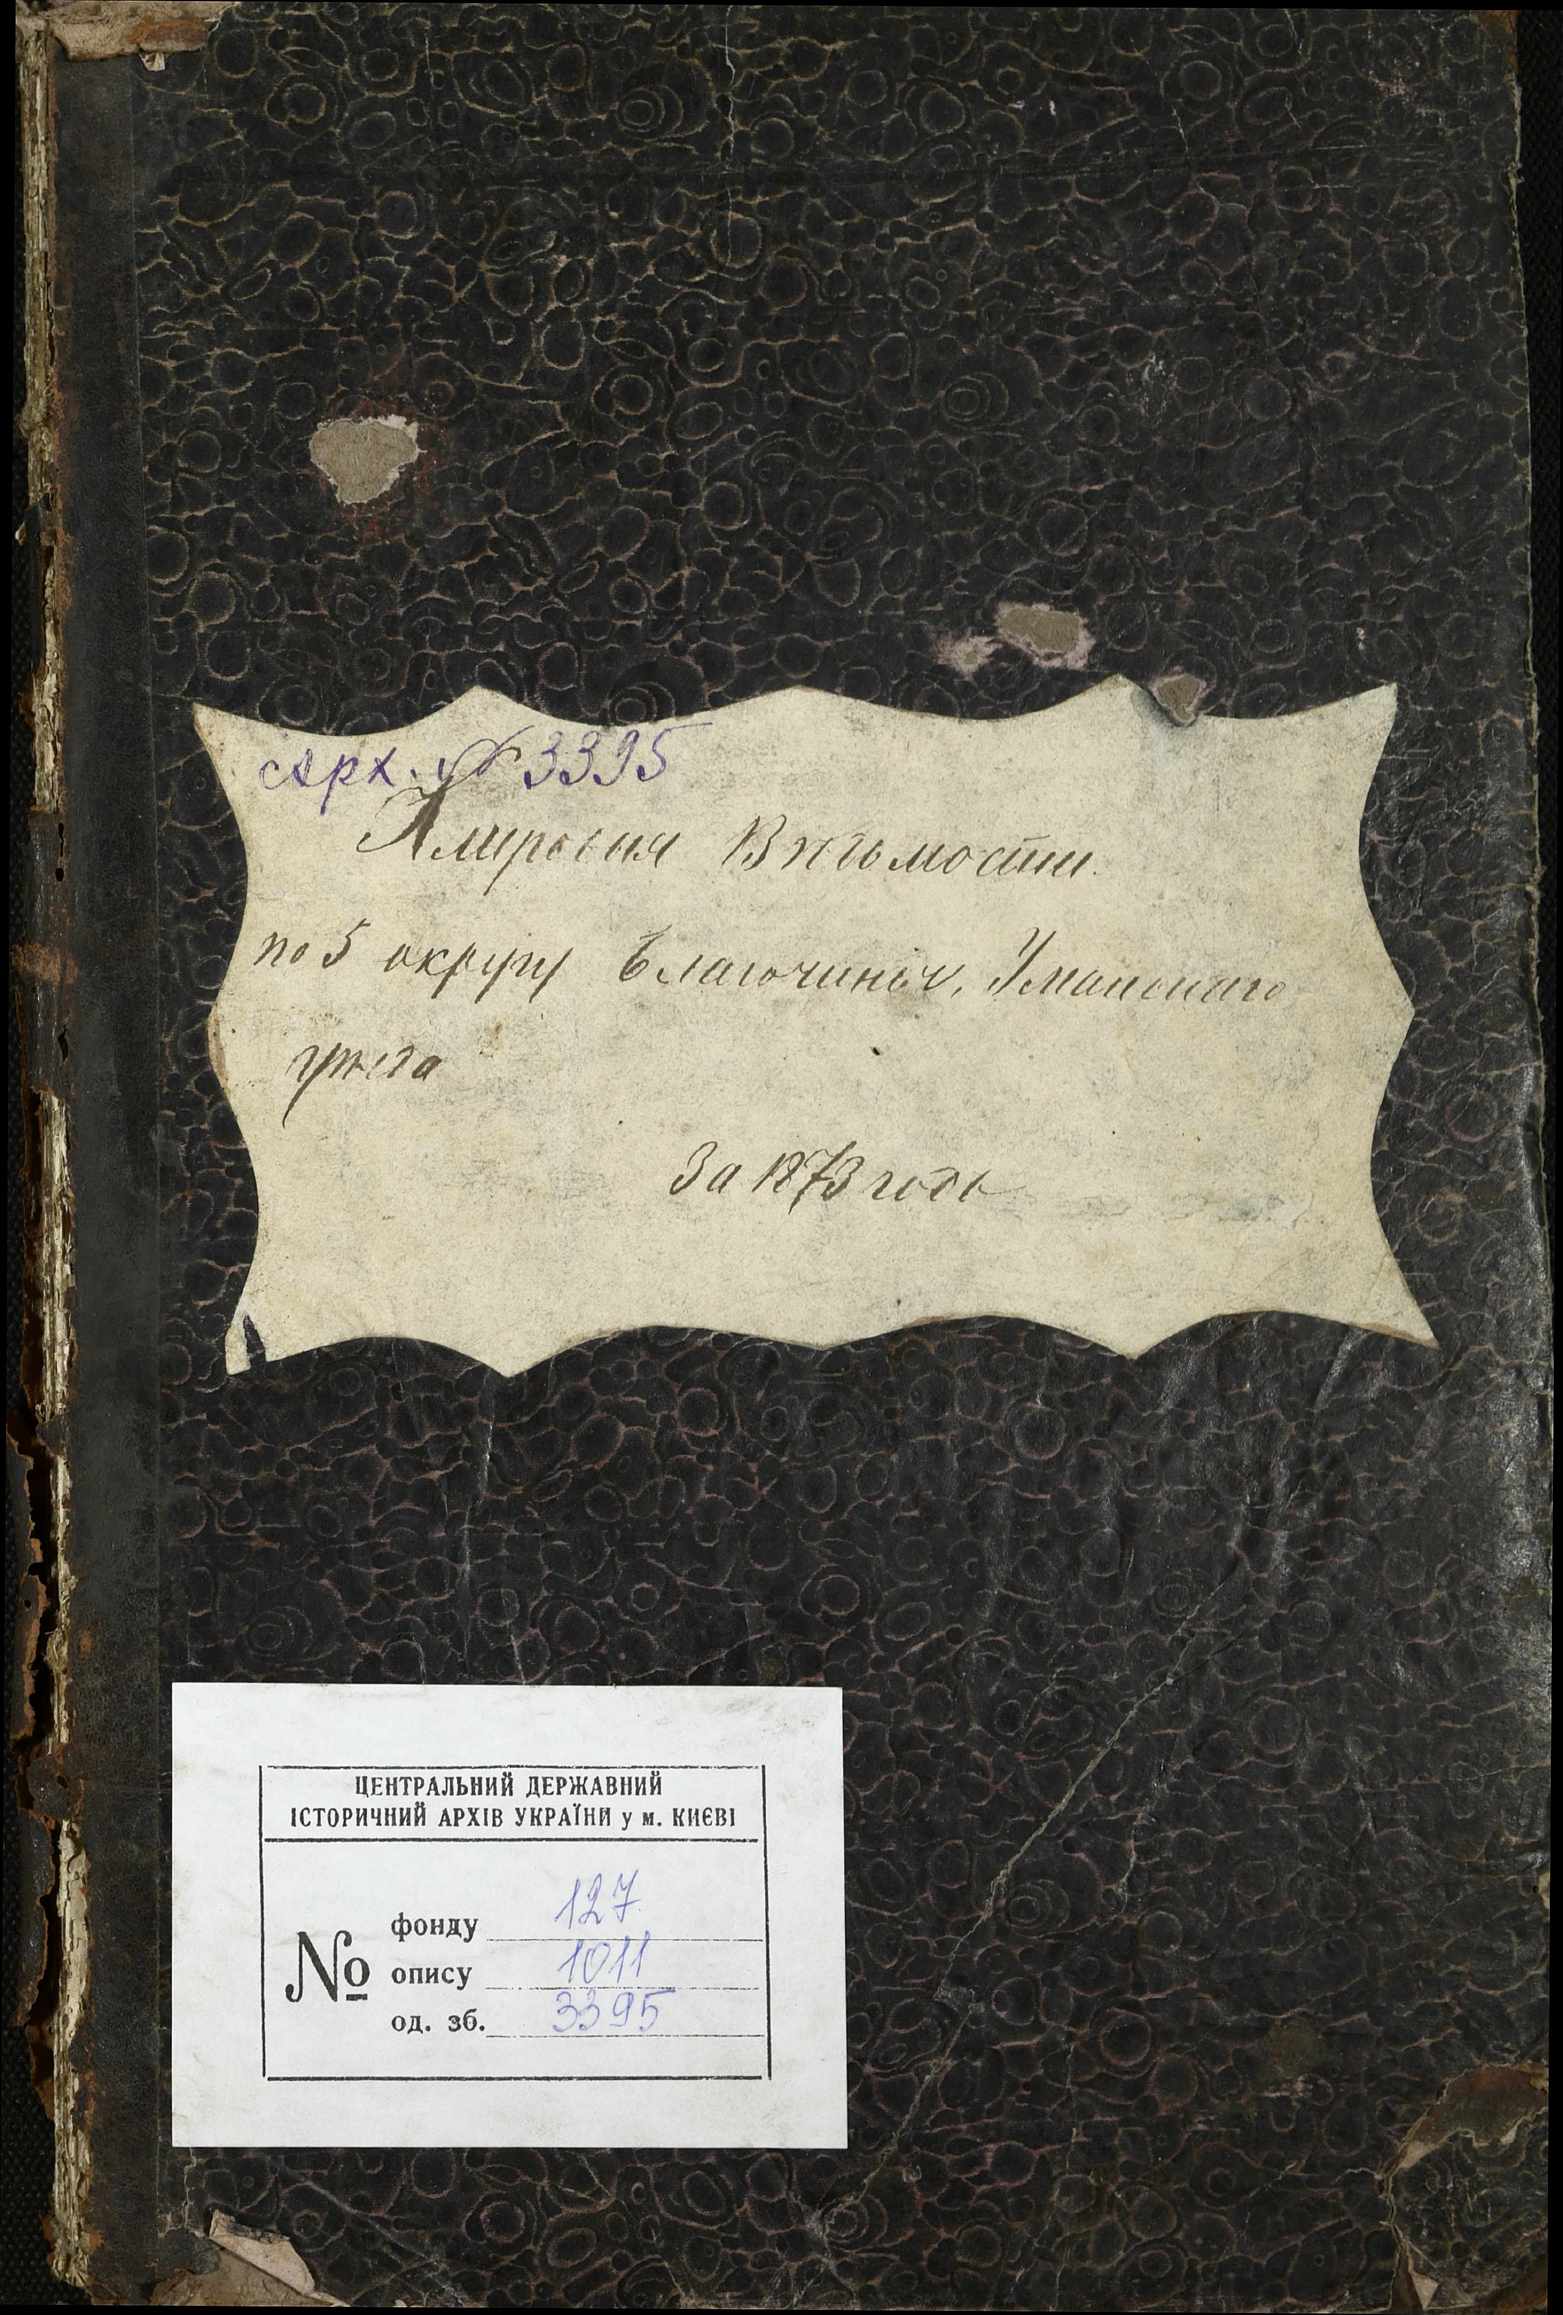 Арх. № 3395
Клировыя Вѣдомости
по 5 округу Благочинія, Уманскаго
уѣзда
За 1873 годъ
ЦЕНТРАЛЬНИЙ ДЕРЖАВНИЙ
ІСТОРИЧНИЙ АРХІВ УКРАЇНИ у м. КИЄВІ
№
фонду 127
опису 1011
од. зб. 3395